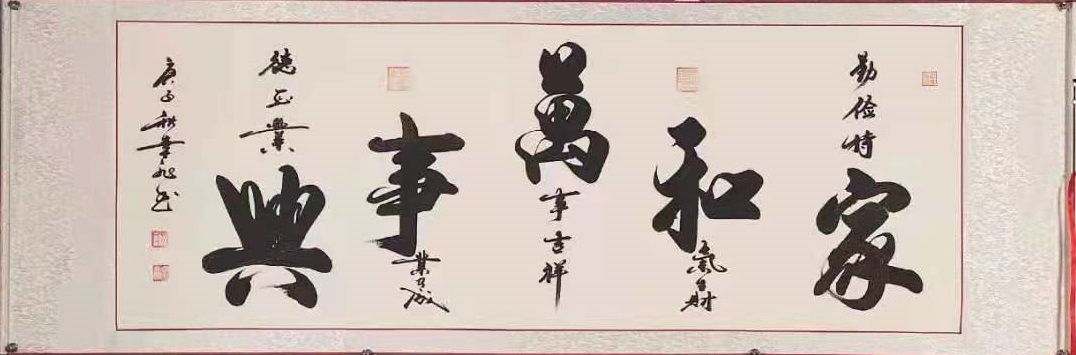 勤俭持家
和氣生財
萬事吉祥
事業有成
德正業興
庚子秋